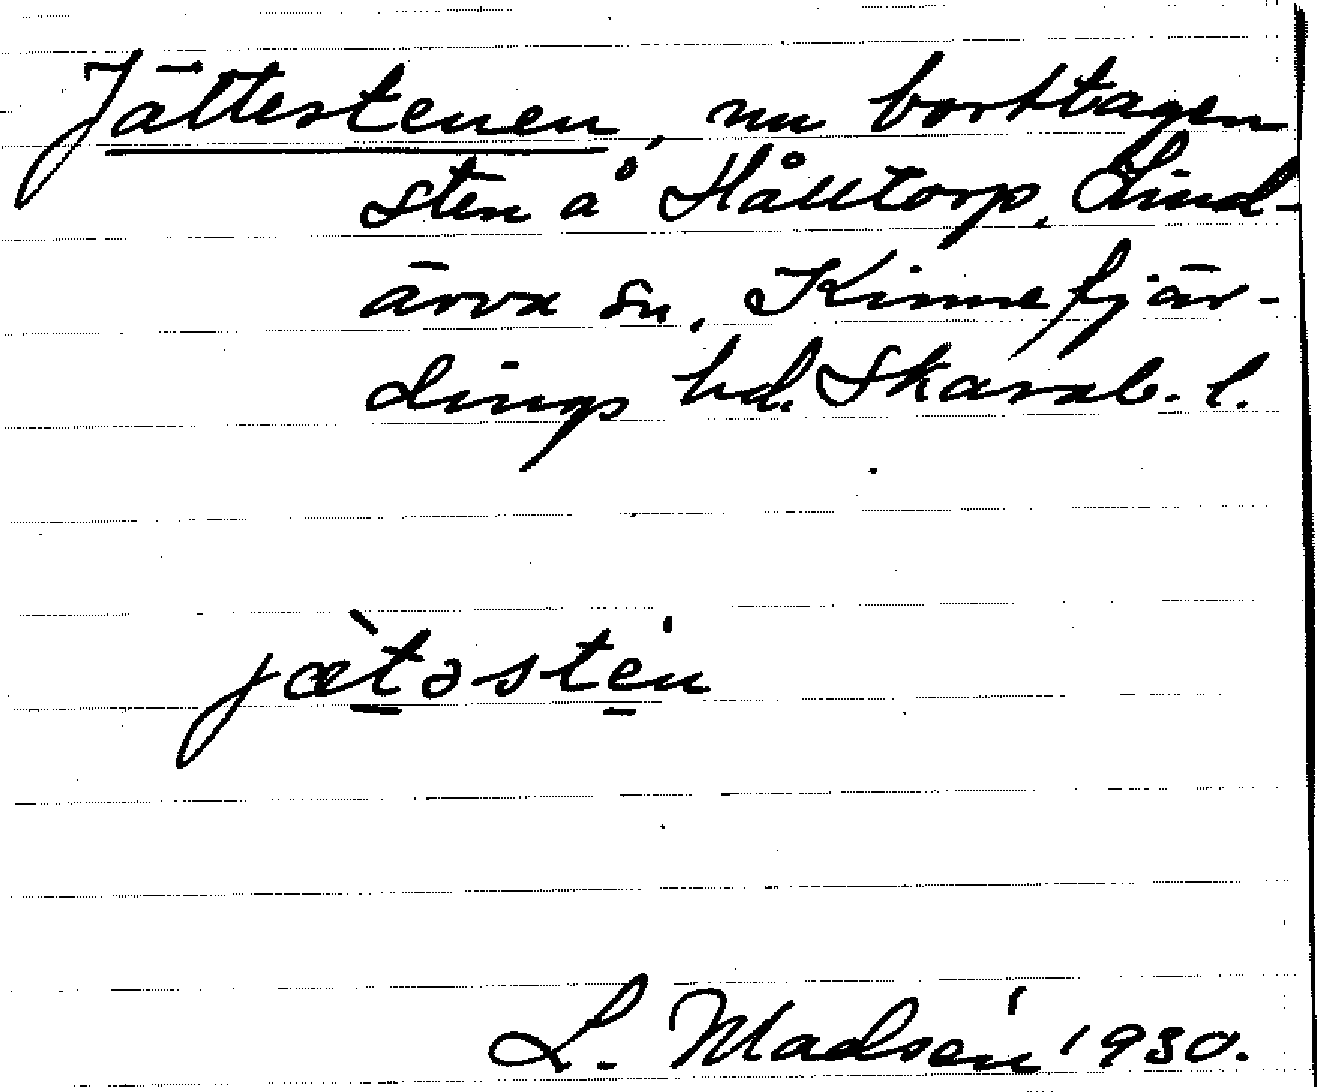 Jättestenen, nu borttagen
sten å Hålltorp, Lind-
ärva sn, Kinnefjär-
dings hd. Skarab. l.
jæ̀təstén
L. Madsén 1930.